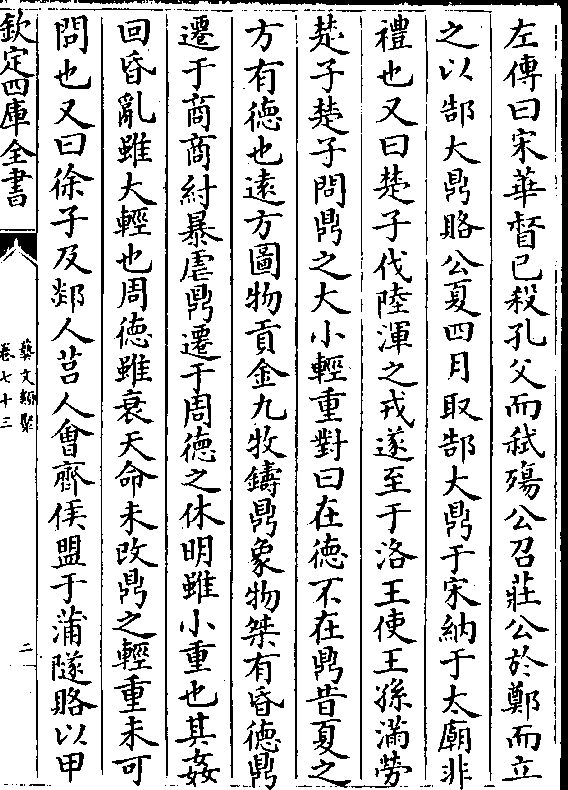 左傳曰宋華督已殺孔父而弑殤公召莊公於鄭而立
之以郜大鼎賂公夏四月取郜大鼎于宋納于太廟非
禮也又曰楚子伐陸渾之戎遂至于洛王使王孫滿勞
楚子楚子問鼎之大小輕重對曰在德不在鼎昔夏之
方有德也遠方圖物貢金九牧鑄鼎象物桀有昏德鼎
遷于商商紂暴虐鼎遷于周德之休明雖小重也其姦
回昏亂雖大輕也周德雖衰天命未改鼎之輕重未可
問也又曰徐子及郯人莒人會齊侯盟于蒲隧賂以甲
欽定四庫全書
藝文類聚
卷七十三
二